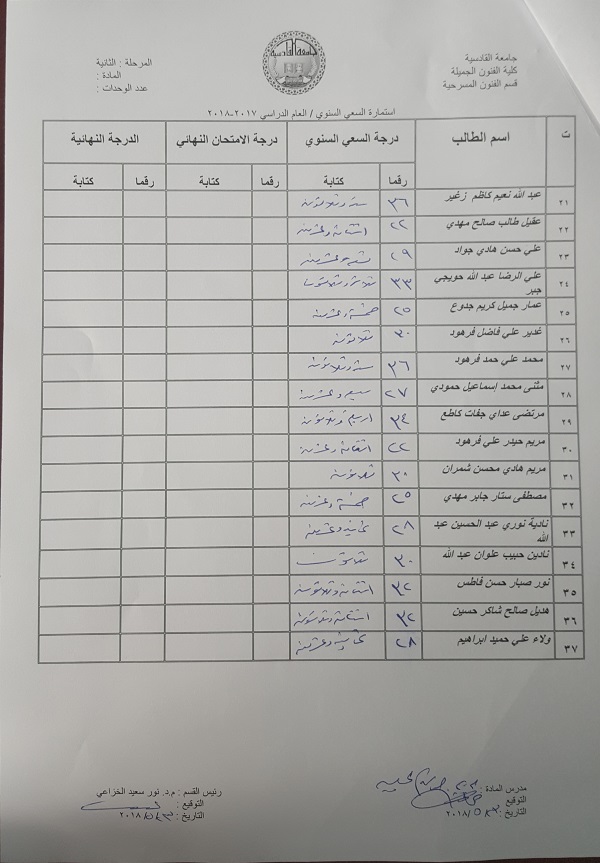 جامعة القادسية
كلية الفنون الجميلة
قسم الفنون المسرحية
المرحلة : الثانية
المادة :
عدد الوحدات :
استمارة السعي السنوي / العام الدراسي ٢٠١٧-٢٠١٨
ت اسم الطالب درجة السعي السنوي درجة الامتحان النهائي الدرجة النهائية
رقما كتابة رقما كتابة رقما كتابة
٢١ عبد الله نعيم كاظم زغير ٣٦ ستة وثلاثون
٢٢ عقيل طالب صالح مهدي ٢٢ اثنتان وعشرون
٢٣ علي حسن هادي جواد ٢٩ تسعة وعشرون
٢٤ علي الرضا عبد الله حويجي ٣٣ ثلاثة وثلاثون
جبر
٢٥ عمار جميل كريم جدوع ٢٥ خمسة وعشرون
٢٦ غدير علي فاضل فرهود ٣٠ ثلاثون
٢٧ محمد علي حمد فرهود ٣٦ ستة وثلاثون
٢٨ مثنى محمد إسماعيل حمودي ٢٧ سبع وعشرون
٢٩ مرتضى عداي جفات كاطع ٣٤ اربع وثلاثون
٣٠ مريم حيدر علي فرهود ٢٢ اثنتان وعشرون
٣١ مريم هادي محسن شمران ٣٠ ثلاثون
٣٢ مصطفى ستار جابر مهدي ٢٥ خمسة وعشرون
٣٣ نادية نوري عبد الحسين عبد ٢٨ ثمانية وعشرون
الله
٣٤ نادين حبيب علوان عبد الله ٣٠ ثلاثون
٣٥ نور صبار حسن فاطس ٣٢ اثنتان وثلاثون
٣٦ هديل صالح شاكر حسين ٣٢ اثنتان وثلاثون
٣٧ ولاء علي حميد ابراهيم ٢٨ ثمانية وعشرون
مدرس المادة :
التوقيع
التاريخ : ٢٠١٨/٥/
رئيس القسم : م.د. نور سعيد الخزاعي
التوقيع :
التاريخ : ٢٠١٨/